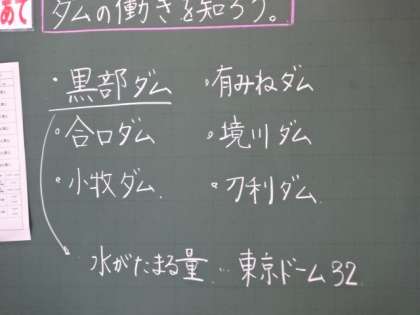 めあて
ダムの働きを知ろう。
・黒部ダム
・有みねダム
・合口ダム
・境川ダム
・小牧ダム
・刀利ダム
水がたまる量…東京ドーム32